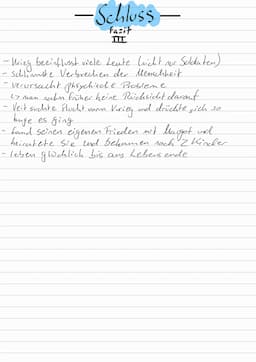 Schluss
Fazit
III
- Krieg beeinflusst viele Leute (nicht nur Soldaten)
- schlimmste Verbrechen der Menschheit
- verursacht phsychische Probleme
↳ man nahm früher keine Rücksicht darauf
- Veit suchte Flucht vorm Krieg und drückte sich so
lange es ging
- fand seinen eigenen Frieden mit Margot und
heiratete sie und bekommen noch 2 Kinder
- leben glücklich bis ans Lebensende